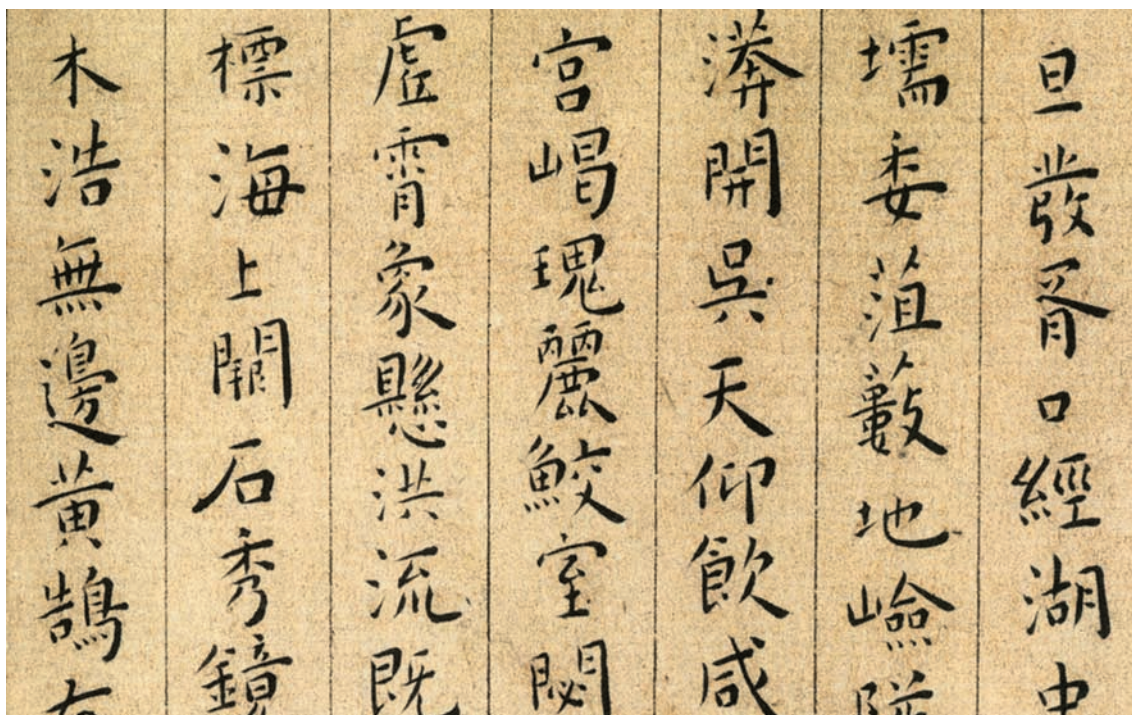 旦發胥口經湖中
壖委菹藪地嶮
漭開吳天仰飲咸
宮嵑瑰麗鮫室閟
虛霄象懸洪流既
標海上石秀鏡
木浩無邊黃鵠